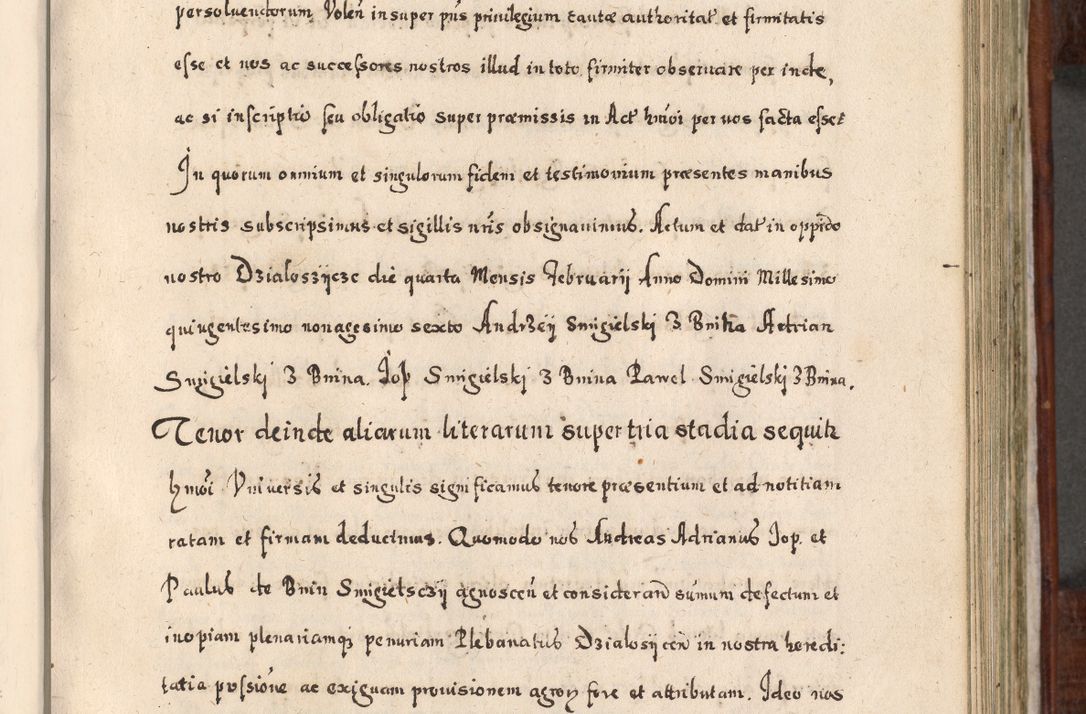 persoluendorum Volen̄ insuper pn̄s privilegium tantæ authoritat̄ et firmitatis
esse et nos ac successores nostros illud in toto firmiter observare per inde,
ac si inscriptio seu obligatio super præmissis in Act̄ hmōi per nos facta esset
In quorum omnium et singulorum fidem et testimonium præsentes manibus
nostris subscripsimus et sigillis nr̄is obsignavimus. Actum et dat̄ in oppido
nostro Dzialoszijcze die quarta Mensis Februarij Anno Domini Millesimo
quingentesimo nonagesimo sexto Andrzeij Smigielskj Z Bnina Aetrian
Smigielskj Z Bnina. Jop Smigielskj Z Bnina Pawel Smigielskj Z Bnina.
Tenor deinde aliarum literarum super tria stadia sequitr
hmōi Vniversis et singulis significamus tenore præsentium et ad notitiam
ratam et firmam deducimus. Quomodo nos Andreas Adrianus Jop. et
Paulus de Bnin Smigielsczij agnoscen̄ et consideran̄ sum̄um defectum et
inopiam plenariamqꝫ penuriam Plebanatus Dzialosijcen̄ in nostra heredi:
tatia possiōne ac exiguam provisionem agroꝝ fore et attributam. Ideo nos